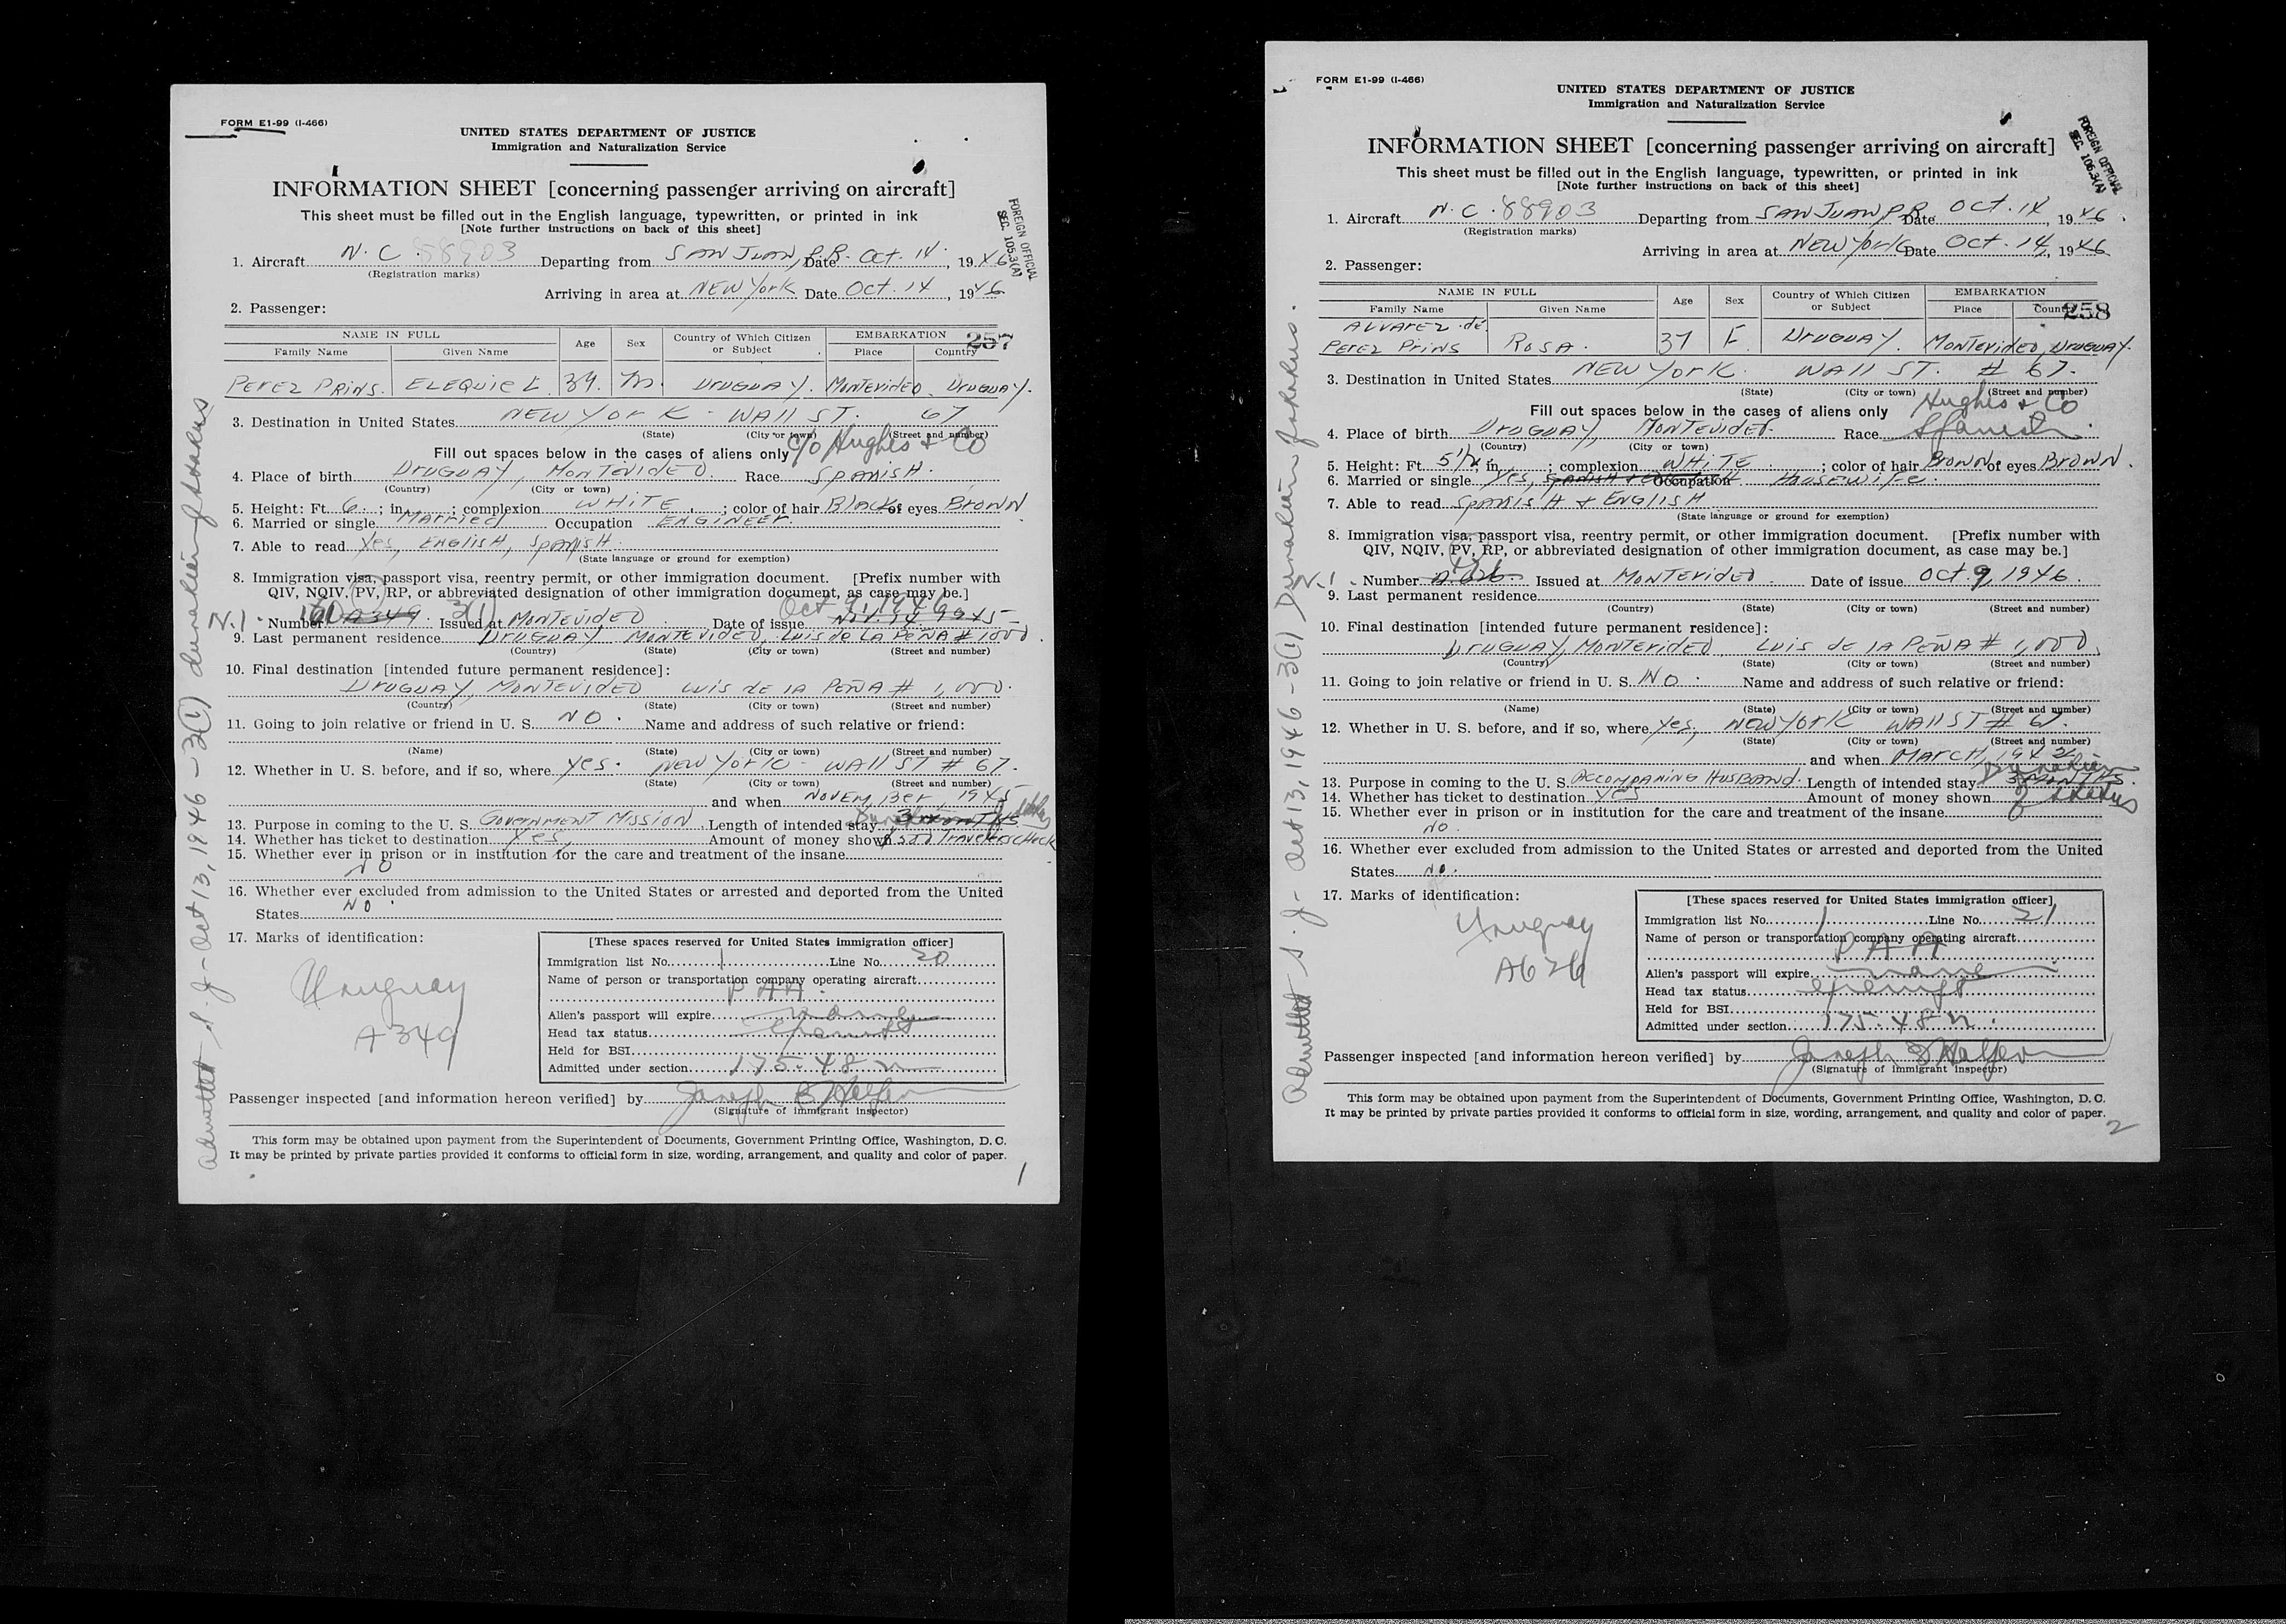 FORM E1-99 (I-466)
UNITED STATES DEPARTMENT OF JUSTICE
Immigration and Naturalization Service
INFORMATION SHEET [concerning passenger arriving on aircraft]
This sheet must be filled out in the English language, typewritten, or printed in ink
[Note further instructions on back of this sheet]
FOREIGN OFFICIAL
SEC. 105.3(A)
1. Aircraft N.C. 88903 Departing from SAN JUAN, P.R. Date Oct. 14, 1946
(Registration marks)
Arriving in area at NEW York Date Oct. 14, 1946
2. Passenger:
257
NAME IN FULL Age Sex Country of Which Citizen or Subject EMBARKATION
Family Name Given Name Place Country
PEREZ PRINS. EZEQUIEL 39. M. URUGUAY. MONTEVIDEO. URUGUAY.
3. Destination in United States NEW YORK - WALL ST. 67
(State) (City or town) (Street and number)
c/o Hughes & Co
Fill out spaces below in the cases of aliens only
4. Place of birth URUGUAY, MONTEVIDEO. Race SPANISH.
(Country) (City or town)
5. Height: Ft. 6. ; in. ; complexion WHITE ; color of hair Black of eyes BROWN
6. Married or single Married Occupation ENGINEER.
7. Able to read Yes, ENGLISH, SPANISH.
(State language or ground for exemption)
8. Immigration visa, passport visa, reentry permit, or other immigration document. [Prefix number with
QIV, NQIV, PV, RP, or abbreviated designation of other immigration document, as case may be.]
Oct 9, 1946
Number A349 3(1) Issued at MONTEVIDEO Date of issue
9. Last permanent residence URUGUAY MONTEVIDEO, LUIS DE LA PEÑA # 1000.
(Country) (State) (City or town) (Street and number)
10. Final destination [intended future permanent residence]:
URUGUAY, MONTEVIDEO LUIS DE LA PEÑA # 1,000.
(Country) (State) (City or town) (Street and number)
11. Going to join relative or friend in U. S. NO. Name and address of such relative or friend:
(Name) (State) (City or town) (Street and number)
12. Whether in U. S. before, and if so, where Yes. NEW YORK - WALL ST # 67.
(State) (City or town) (Street and number)
and when NOVEMBER, 1945
13. Purpose in coming to the U. S. GOVERNMENT MISSION. Length of intended stay 3 MONTHS
14. Whether has ticket to destination Yes, Amount of money shown Travelers Check
15. Whether ever in prison or in institution for the care and treatment of the insane
NO
16. Whether ever excluded from admission to the United States or arrested and deported from the United
States NO.
17. Marks of identification:
Uruguay
A349
[These spaces reserved for United States immigration officer]
Immigration list No. 1 Line No. 20
Name of person or transportation company operating aircraft
PAA.
Alien's passport will expire
Head tax status exempt
Held for BSI
Admitted under section 175.48
Passenger inspected [and information hereon verified] by Joseph
(Signature of immigrant inspector)
This form may be obtained upon payment from the Superintendent of Documents, Government Printing Office, Washington, D. C.
It may be printed by private parties provided it conforms to official form in size, wording, arrangement, and quality and color of paper.
1
Admitted S.J - Oct 13, 1946 - 3(1) duration of status
FORM E1-99 (I-466)
UNITED STATES DEPARTMENT OF JUSTICE
Immigration and Naturalization Service
INFORMATION SHEET [concerning passenger arriving on aircraft]
This sheet must be filled out in the English language, typewritten, or printed in ink
[Note further instructions on back of this sheet]
FOREIGN OFFICIAL
1. Aircraft N.C. 88903 Departing from SAN JUAN, P.R. Date Oct. 14, 1946.
(Registration marks)
Arriving in area at NEW YORK Date Oct. 14, 1946
2. Passenger:
258
NAME IN FULL Age Sex Country of Which Citizen or Subject EMBARKATION
Family Name Given Name Place Country
ALVAREZ de
PEREZ PRINS ROSA. 37 F. URUGUAY. MONTEVIDEO, URUGUAY.
3. Destination in United States NEW YORK. WALL ST. # 67.
(State) (City or town) (Street and number)
Hughes & Co
Fill out spaces below in the cases of aliens only
4. Place of birth URUGUAY, MONTEVIDEO. Race Spanish.
(Country) (City or town)
5. Height: Ft. 5½; in. ; complexion WHITE ; color of hair BROWN of eyes BROWN.
6. Married or single Yes, Occupation HOUSEWIFE.
7. Able to read SPANISH & ENGLISH
(State language or ground for exemption)
8. Immigration visa, passport visa, reentry permit, or other immigration document. [Prefix number with
QIV, NQIV, PV, RP, or abbreviated designation of other immigration document, as case may be.]
Number A626 Issued at MONTEVIDEO. Date of issue Oct. 9, 1946.
9. Last permanent residence
(Country) (State) (City or town) (Street and number)
10. Final destination [intended future permanent residence]:
URUGUAY, MONTEVIDEO LUIS DE LA PEÑA # 1,000.
(Country) (State) (City or town) (Street and number)
11. Going to join relative or friend in U. S. NO. Name and address of such relative or friend:
(Name) (State) (City or town) (Street and number)
12. Whether in U. S. before, and if so, where Yes, NEW YORK WALL ST # 67.
(State) (City or town) (Street and number)
and when MARCH,
13. Purpose in coming to the U. S. ACCOMPANING HUSBAND. Length of intended stay 3 MONTHS
14. Whether has ticket to destination Yes Amount of money shown
Duration of status
15. Whether ever in prison or in institution for the care and treatment of the insane
NO.
16. Whether ever excluded from admission to the United States or arrested and deported from the United
States NO.
17. Marks of identification:
Uruguay
A626
[These spaces reserved for United States immigration officer]
Immigration list No. 1 Line No. 21
Name of person or transportation company operating aircraft
PAA
Alien's passport will expire
Head tax status exempt
Held for BSI
Admitted under section 175.48
Passenger inspected [and information hereon verified] by Joseph
(Signature of immigrant inspector)
This form may be obtained upon payment from the Superintendent of Documents, Government Printing Office, Washington, D. C.
It may be printed by private parties provided it conforms to official form in size, wording, arrangement, and quality and color of paper.
2
Admitted S.J - Oct 13, 1946 - 3(1) Duration of status.